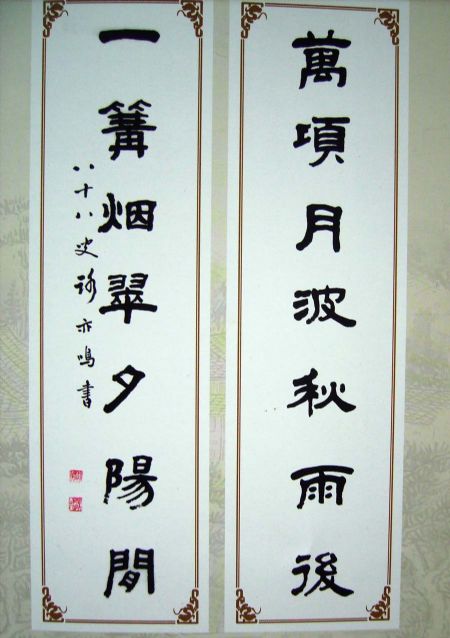 萬項月波秋雨後
一篝烟翠夕陽閒
八十八叟亦鳴書